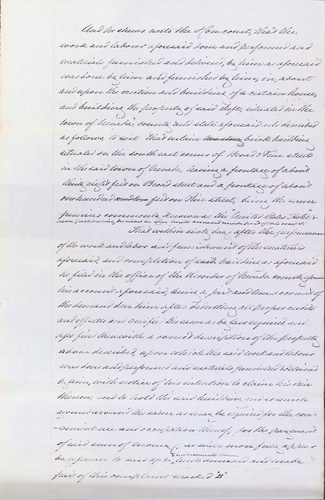 And he shows unto the Hon court, that the
work and labour aforesaid done and performed and
materials furnished and delivered, by him as aforesaid
was done by him and furnished by him, in, about
and upon the erection and building of a certain house
and building the property of said situated in the
town of county and state aforesaid described
as follows, to wit That certain brick building
situated on the south east corner of Broad & Pine streets
in the said town of having a frontage of about
eight feet on Broad street and a frontage of about
one hundred feet on Pine street, being the same
premises commonly known as the United States
That within sixty days after the performance
of the work and labor and furnishment of the materials
aforesaid, and completion of said building as aforesaid
he filed in the office of the Recorder of county
his account aforesaid, being a just and true account of
the demand due him after deducting all proper credits
and offsets and verified the same as by law required and
also filed therewith a correct description of the property
above described, upon which the said work and labour
was done and performed and materials furnished
by him, with notice of his intention to claim his lien
thereon, and to hold the said building and so much
ground around the same as may be required for the
and occupation thereof, for the payment
of said sum of money, as will more fully appear
by reference to said and made
part of this complaint marked "B"